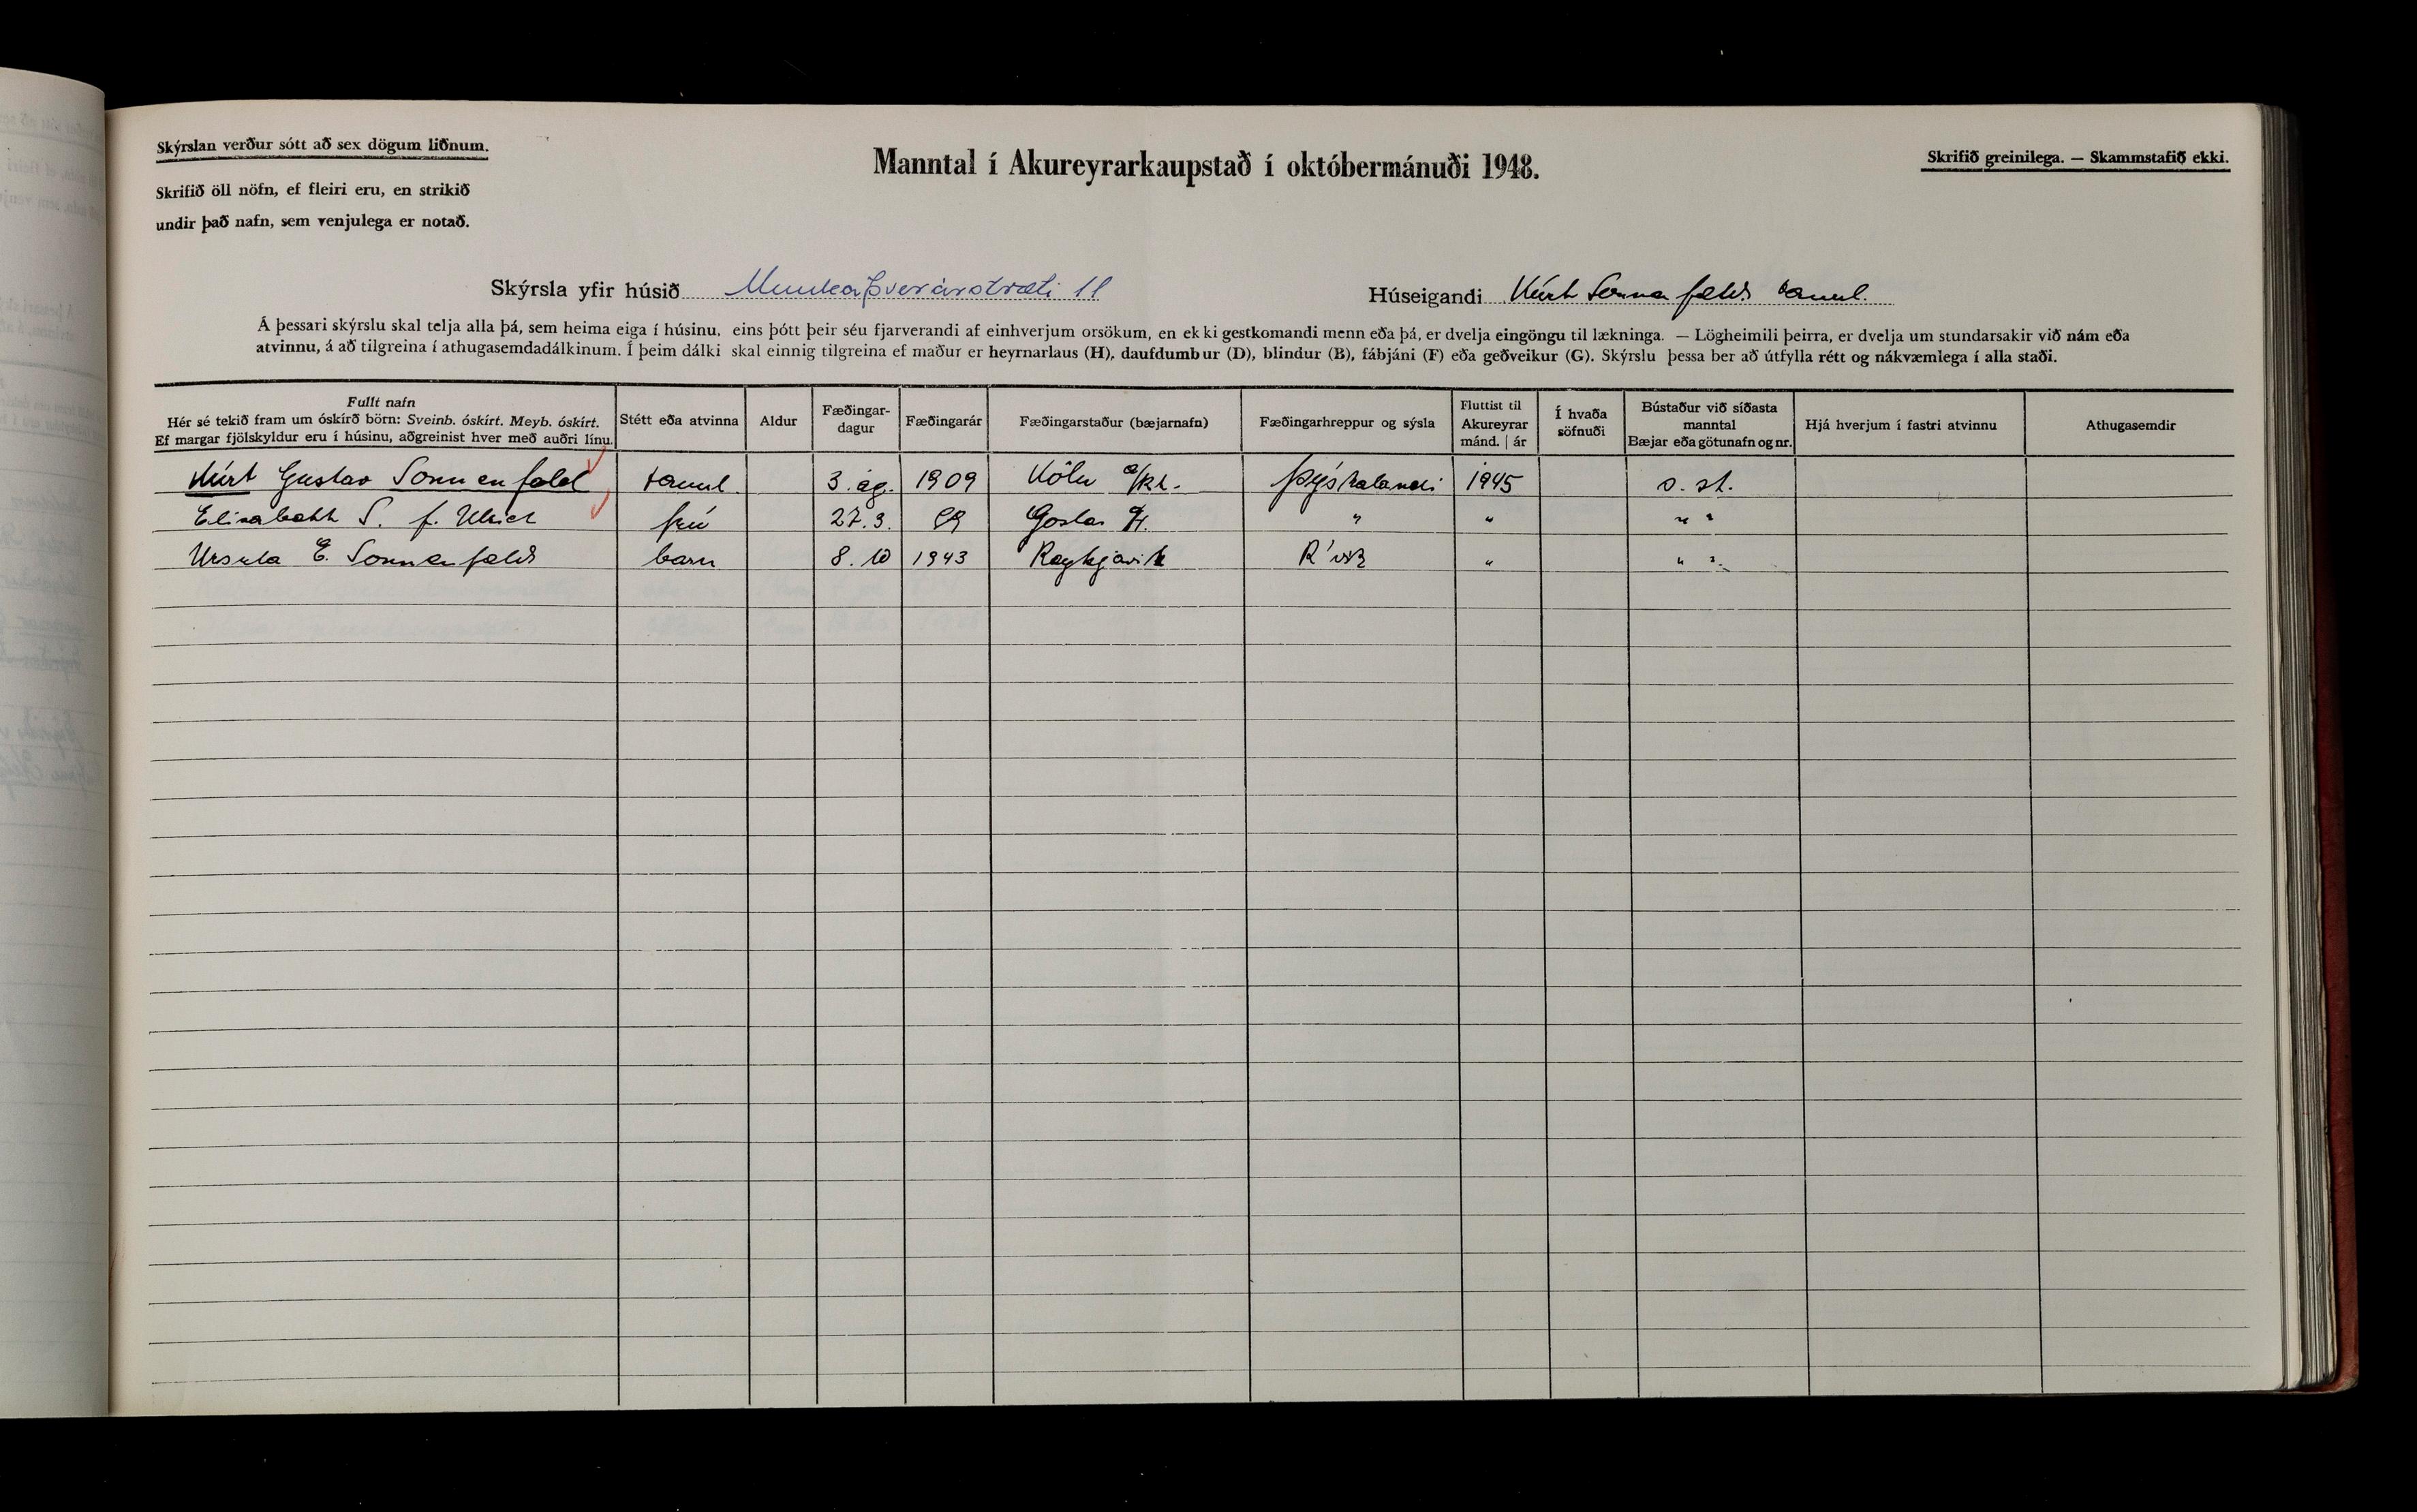 Skýrslan verður sótt að sex dögum liðnum.
Manntal í Akureyrarkaupstað í októbermánuði 1948.
Skrifið greinilega. — Skammstafið ekki.
Skrifið öll nöfn, ef fleiri eru, en strikið
undir það nafn, sem venjulega er notað.
Skýrsla yfir húsið Munkaþverárstræti 11 Húseigandi Kúrt Sonnenfeld tannl.
Á þessari skýrslu skal telja alla þá, sem heima eiga í húsinu, eins þótt þeir séu fjarverandi af einhverjum orsökum, en ekki gestkomandi menn eða þá, er dvelja eingöngu til lækninga. — Lögheimili þeirra, er dvelja um stundarsakir við nám eða
atvinnu, á að tilgreina í athugasemdadálkinum. Í þeim dálki skal einnig tilgreina ef maður er heyrnarlaus (H), daufdumbur (D), blindur (B), fábjáni (F) eða geðveikur (G). Skýrslu þessa ber að útfylla rétt og nákvæmlega í alla staði.
Fullt nafn
Hér sé tekið fram um óskírð börn: Sveinb. óskírt. Meyb. óskírt.
Ef margar fjölskyldur eru í húsinu, aðgreinist hver með auðri línu.
Stétt eða atvinna
Aldur
Fæðingar-
dagur
Fæðingarár
Fæðingarstaður (bæjarnafn)
Fæðingarhreppur og sýsla
Fluttist til
Akureyrar
mánd. | ár
Í hvaða
söfnuði
Bústaður við síðasta
manntal
Bæjar eða götunafn og nr.
Hjá hverjum í fastri atvinnu
Athugasemdir
Kúrt Gustav Sonnenfeld tannl. 3. ág. 1909 Köln Þýskalandi 1945 s. st.
Elisabeth S. f. Ulrich frú 27. 3. Goslar " " " "
Ursula E. Sonnenfeld barn 8. 10 1943 Reykjavík R'vík " " "